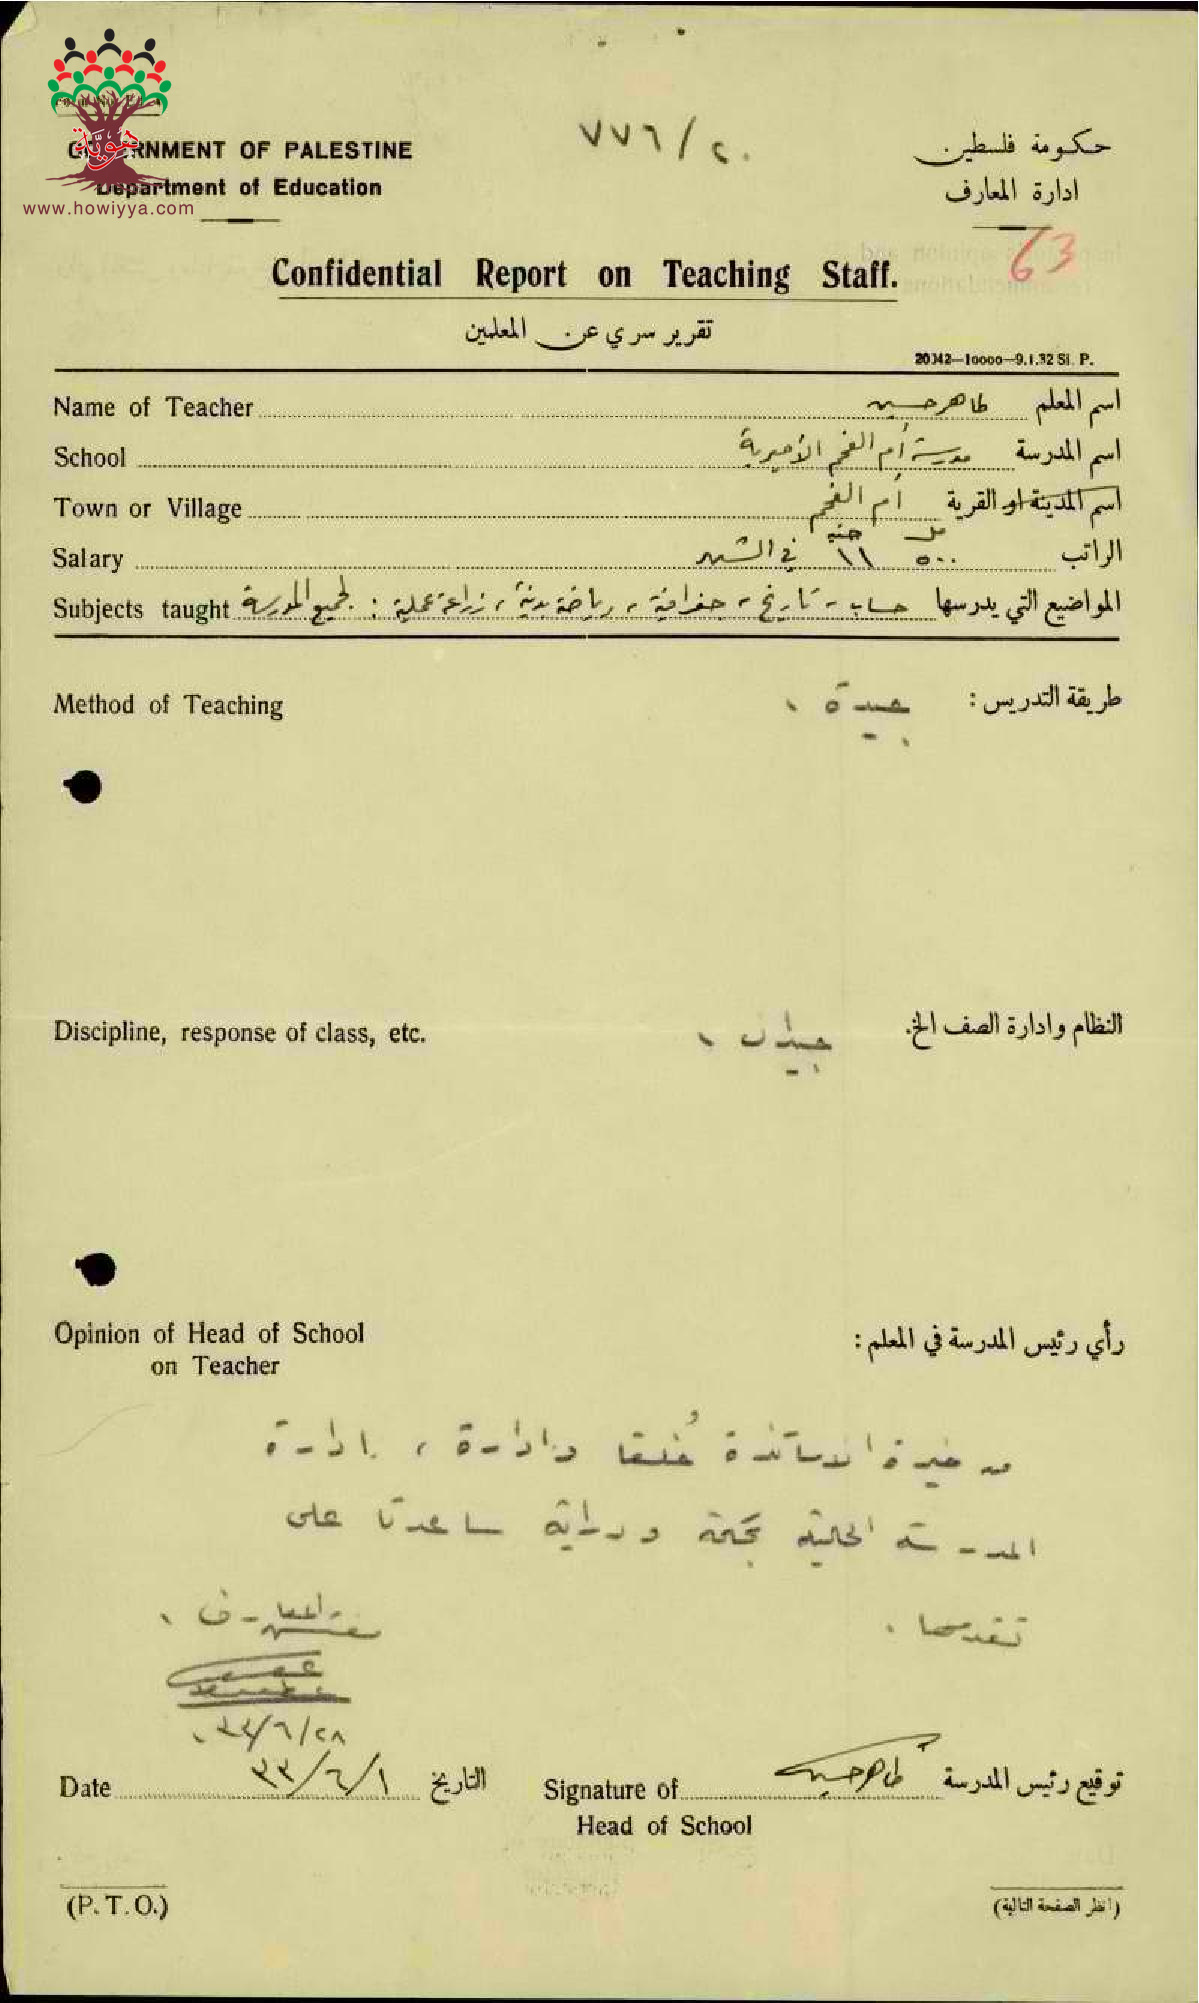 هوية
www.howiyya.com
GOVERNMENT OF PALESTINE
Department of Education
٧٧٦/٢٠
حكومة فلسطين
ادارة المعارف
63
Confidential Report on Teaching Staff.
تقرير سري عن المعلمين
20342—10000—9.1.32 Sl. P.
Name of Teacher طاهر حسين اسم المعلم
School مدرسة أم الفحم الأميرية اسم المدرسة
Town or Village أم الفحم اسم المدينة او القرية
مل جنيه
Salary ٥٠٠ ١١ في الشهر الراتب
Subjects taught حساب، تاريخ، جغرافية، رياضة بدنية، زراعة عملية : لجميع المدرسة المواضيع التي يدرسها
Method of Teaching جيدة . طريقة التدريس :
Discipline, response of class, etc. جيدان . النظام وادارة الصف الخ.
Opinion of Head of School رأي رئيس المدرسة في المعلم :
on Teacher
من خيرة الاساتذة خُلقا وادارة ، بادارة
المدرسة الحالية بحكمة ودراية ساعدتا على
تقدمها .
مفتش المعارف .
٣٣/٦/٢٨ .
Date ٣٣/٦/١ التاريخ
Signature of طاهر حسين توقيع رئيس المدرسة
Head of School
(P.T.O.) (انظر الصفحة التالية)